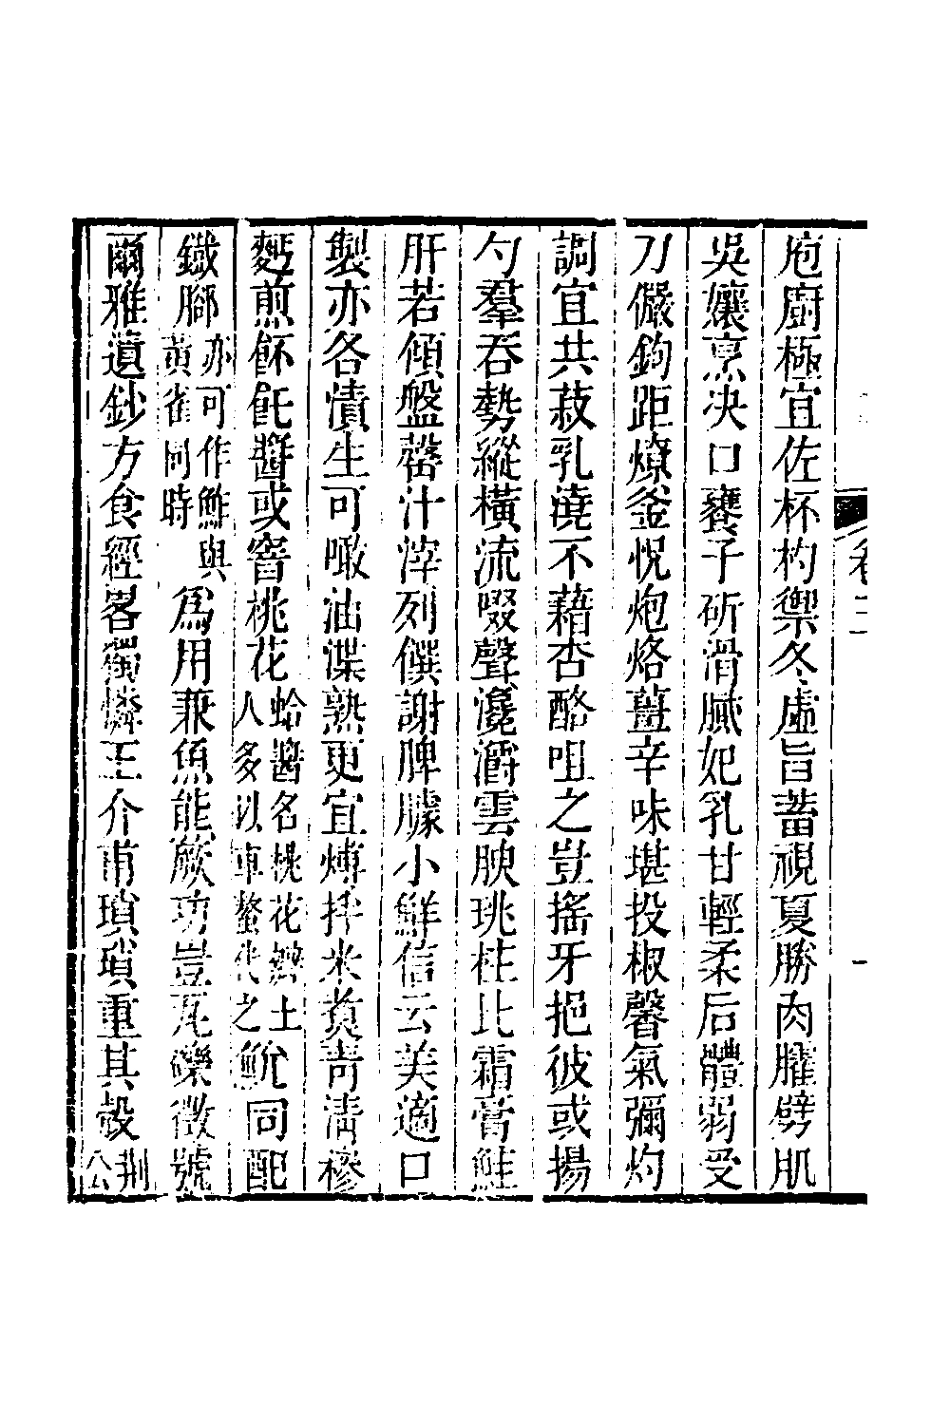 庖廚極宜佐杯杓禦冬虛旨蓄視夏勝肉臛劈肌
吳孃烹決口饔子斫滑膩妃乳甘輕柔后體弱受
刀儼鉤距燎釜悅炮烙薑辛味堪投椒馨氣彌灼
調宜共菽乳澆不藉杏酪咀之豈搖牙挹彼或揚
勺羣吞勢縱橫流啜聲瀺灂雲腴珧柱比霜膏鮭
肝若傾盤罄汁滓列饌謝脾臄小鮮信云美適口
製亦各漬生可噉油渫熟更宜煿拌米煑靑淸糝
麪煎餅飥醬或窨桃花蛤醬名桃花蠏土人多以車螯代之鮵同配
鐵腳亦可作鮓與黃雀同時爲用兼魚能厥功豈瓦礫微號
爾雅遺鈔方食經畧獨憐王介甫瑣瑣重其殼荆公
卷二
一